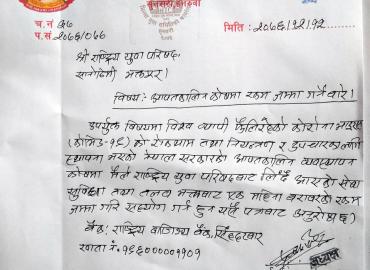 सुनसरी, इनरुवा
च.नं ६७
प.सं. २०७६/०७७
मिति : २०७६/१२/१२
श्री राष्ट्रिय युवा परिषद्
सानोठिमी भक्तपुर ।
विषयः आपतकालिन कोषमा रकम जम्मा गर्ने बारे ।
उपर्युक्त विषयमा विश्व व्यापी फैलिरहेको कोरोना भाइरस
(कोभिड-१९) को रोकथाम तथा नियन्त्रण र उपचारका लागि
स्थापना भएको नेपाल सरकारको आपतकालिन व्यवस्थापन
कोषमा मैले राष्ट्रिय युवा परिषदबाट लिदैं आएको सेवा
सुविधा तथा तलव भत्ताबाट एक महिना बराबरको रकम
जम्मा गरि सहयोग गर्न हुन यसै पत्रबाट अनुरोध छ ।
बैंकः राष्ट्रिय बाणिज्य बैंक, सिंहदरबार
खाता नं. १९६०००००१९०१
अध्यक्ष